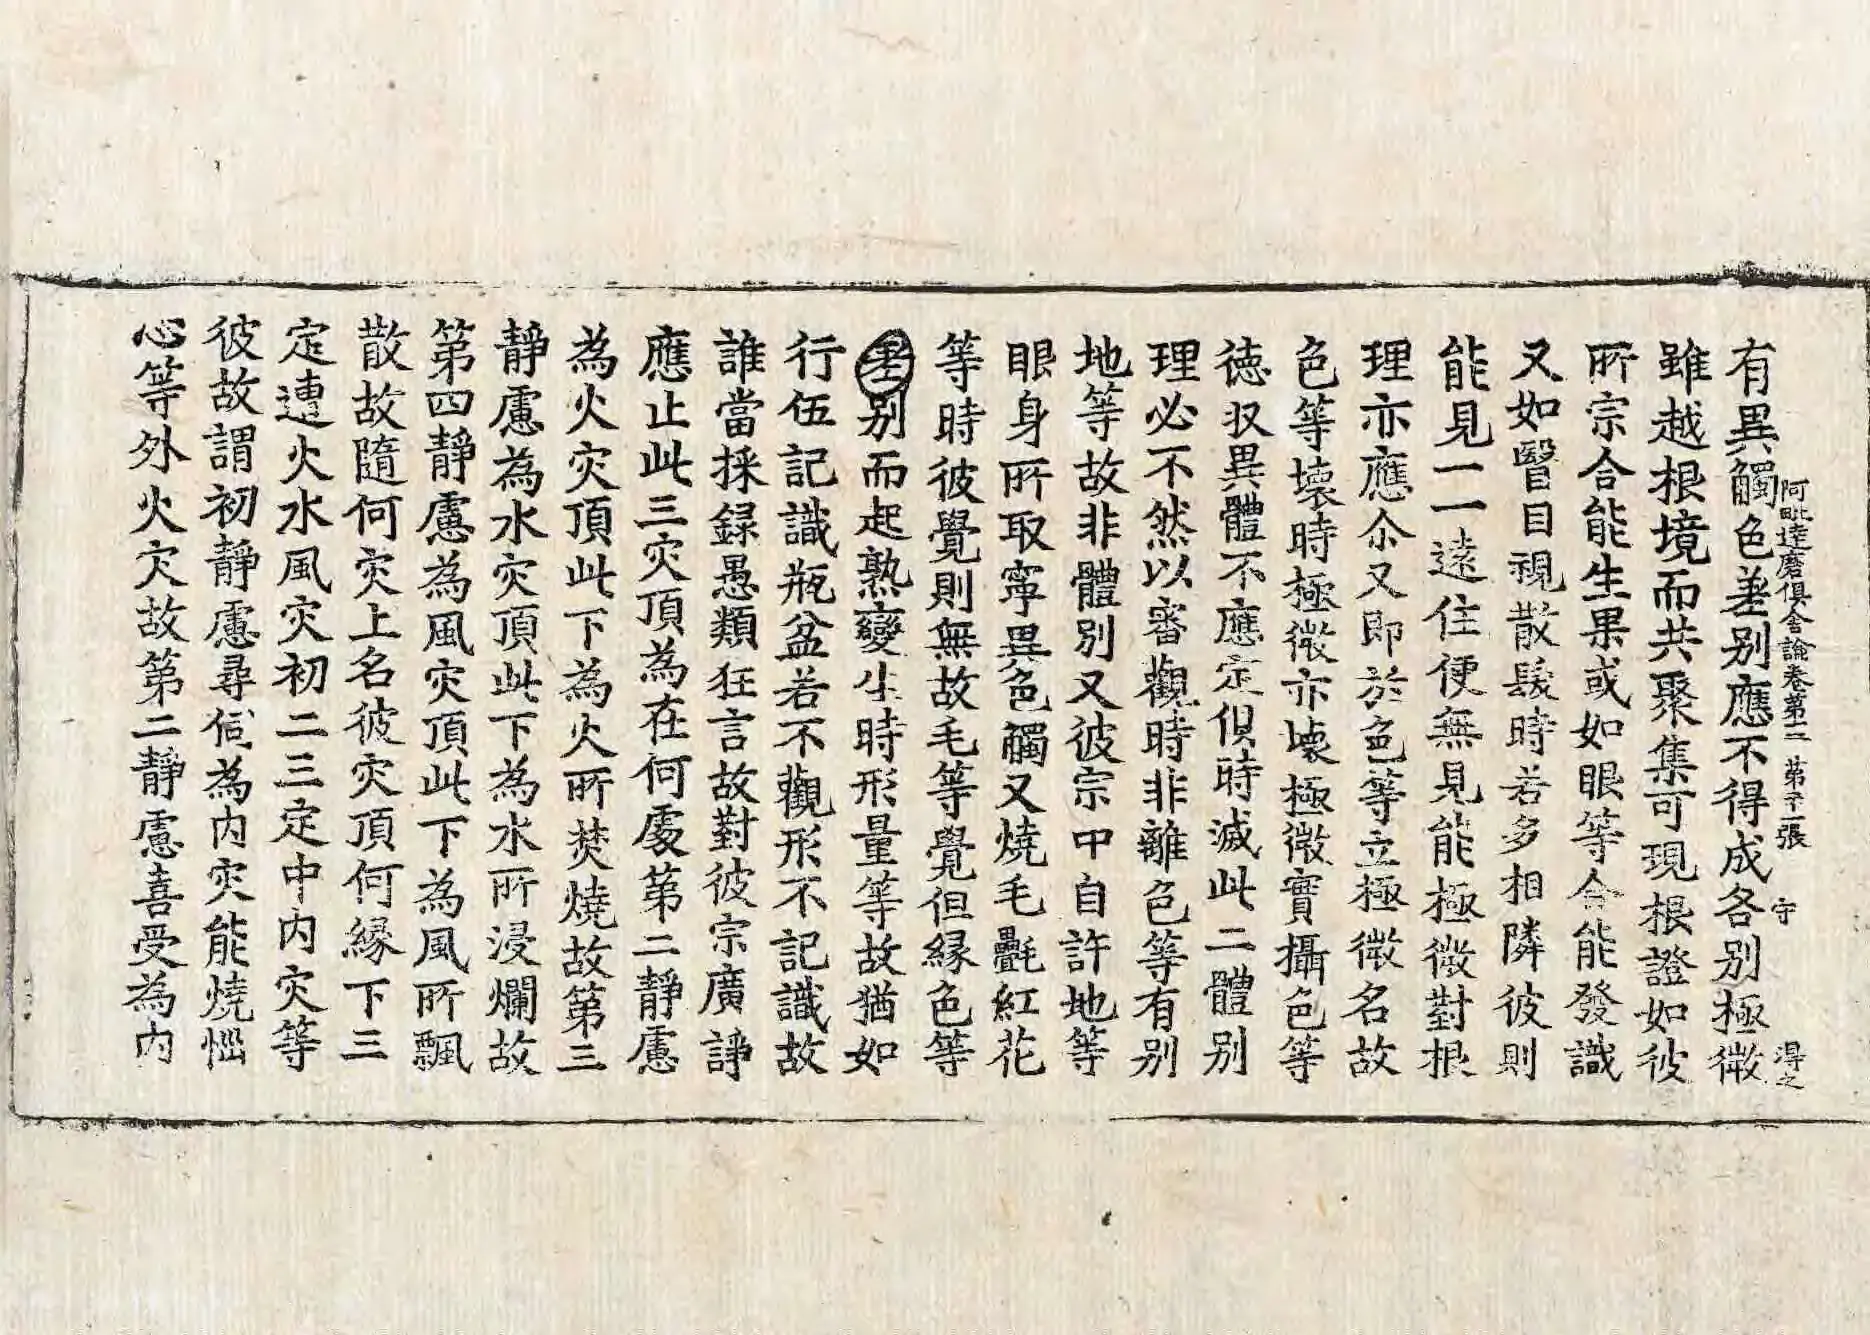 阿毗達磨俱舍論卷第 張 守 得之
有異觸色差别應不得成各别極微
雖越根境而共聚集可現根證如彼
所宗合能生果或如眼等合能發識
又如瞖目視散髮時若多相隣彼則
能見一一遠住便無見能極微對根
理亦應尒又即於色等立極微名故
色等壞時極微亦壞極微實攝色等
德収異體不應定俱時滅此二體别
理必不然以審觀時非離色等有别
地等故非體别又彼宗中自許地等
眼身所取寧異色觸又燒毛氎紅花
等時彼覺則無故毛等覺但緣色等
差别而起熟變生時形量等故猶如
行伍記識瓶盆若不觀形不記識故
誰當採録愚類狂言故對彼宗廣諍
應止此三灾頂為在何處第二靜慮
為火灾頂此下為火所焚燒故第三
靜慮為水灾頂此下為水所浸爛故
第四靜慮為風灾頂此下為風所飄
散故隨何灾上名彼灾頂何緣下三
定遭火水風灾初二三定中内灾等
彼故謂初靜慮尋伺為内灾能燒惱
心等外火灾故第二靜慮喜受為内